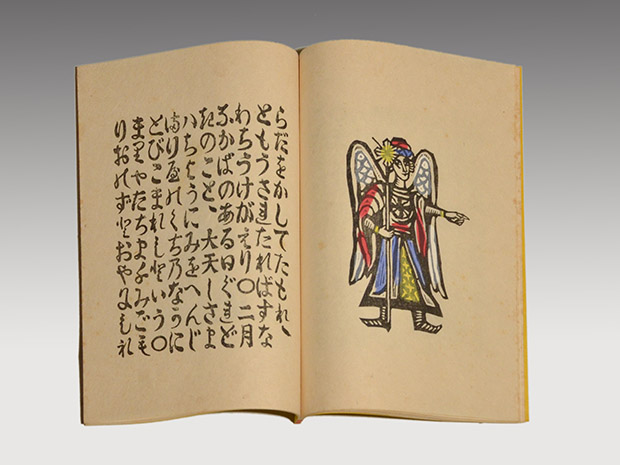 らだをかしてたもれ、
ともうされたればすな
わちうけがえり〇二月
なかばのある日ぐれど
きのこと、大天しさま
はちようにみをへんじ
まりやのくちのなかに
とびこまれしという〇
まりやたちまちみごも
りおのずとおやにもれ